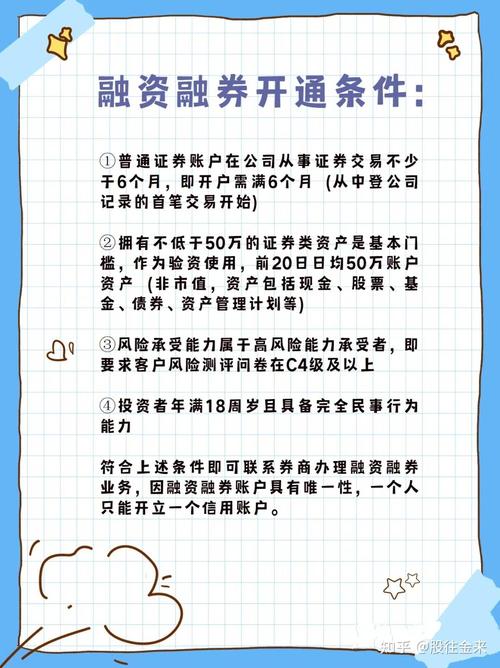 融资融券开通条件：
①普通证券账户在公司从事证券交易不少
于6个月，即开户需满6个月（从中登公司
记录的首笔交易开始)
②拥有不低于50万的证券类资产是基本门
槛，作为验资使用，前20日日均50万账户
资产（非市值，资产包括现金、股票、基
金、债券、资产管理计划等)
③风险承受能力属于高风险能力承受者，即
要求客户风险测评问卷在C4级及以上
④投资者年满18周岁且具备完全民事行为
能力
符合上述条件即可联系券商办理融资融券
业务，因融资融券账户具有唯一性，一个人
只能开立一个信用账户。
知乎 @股往金来